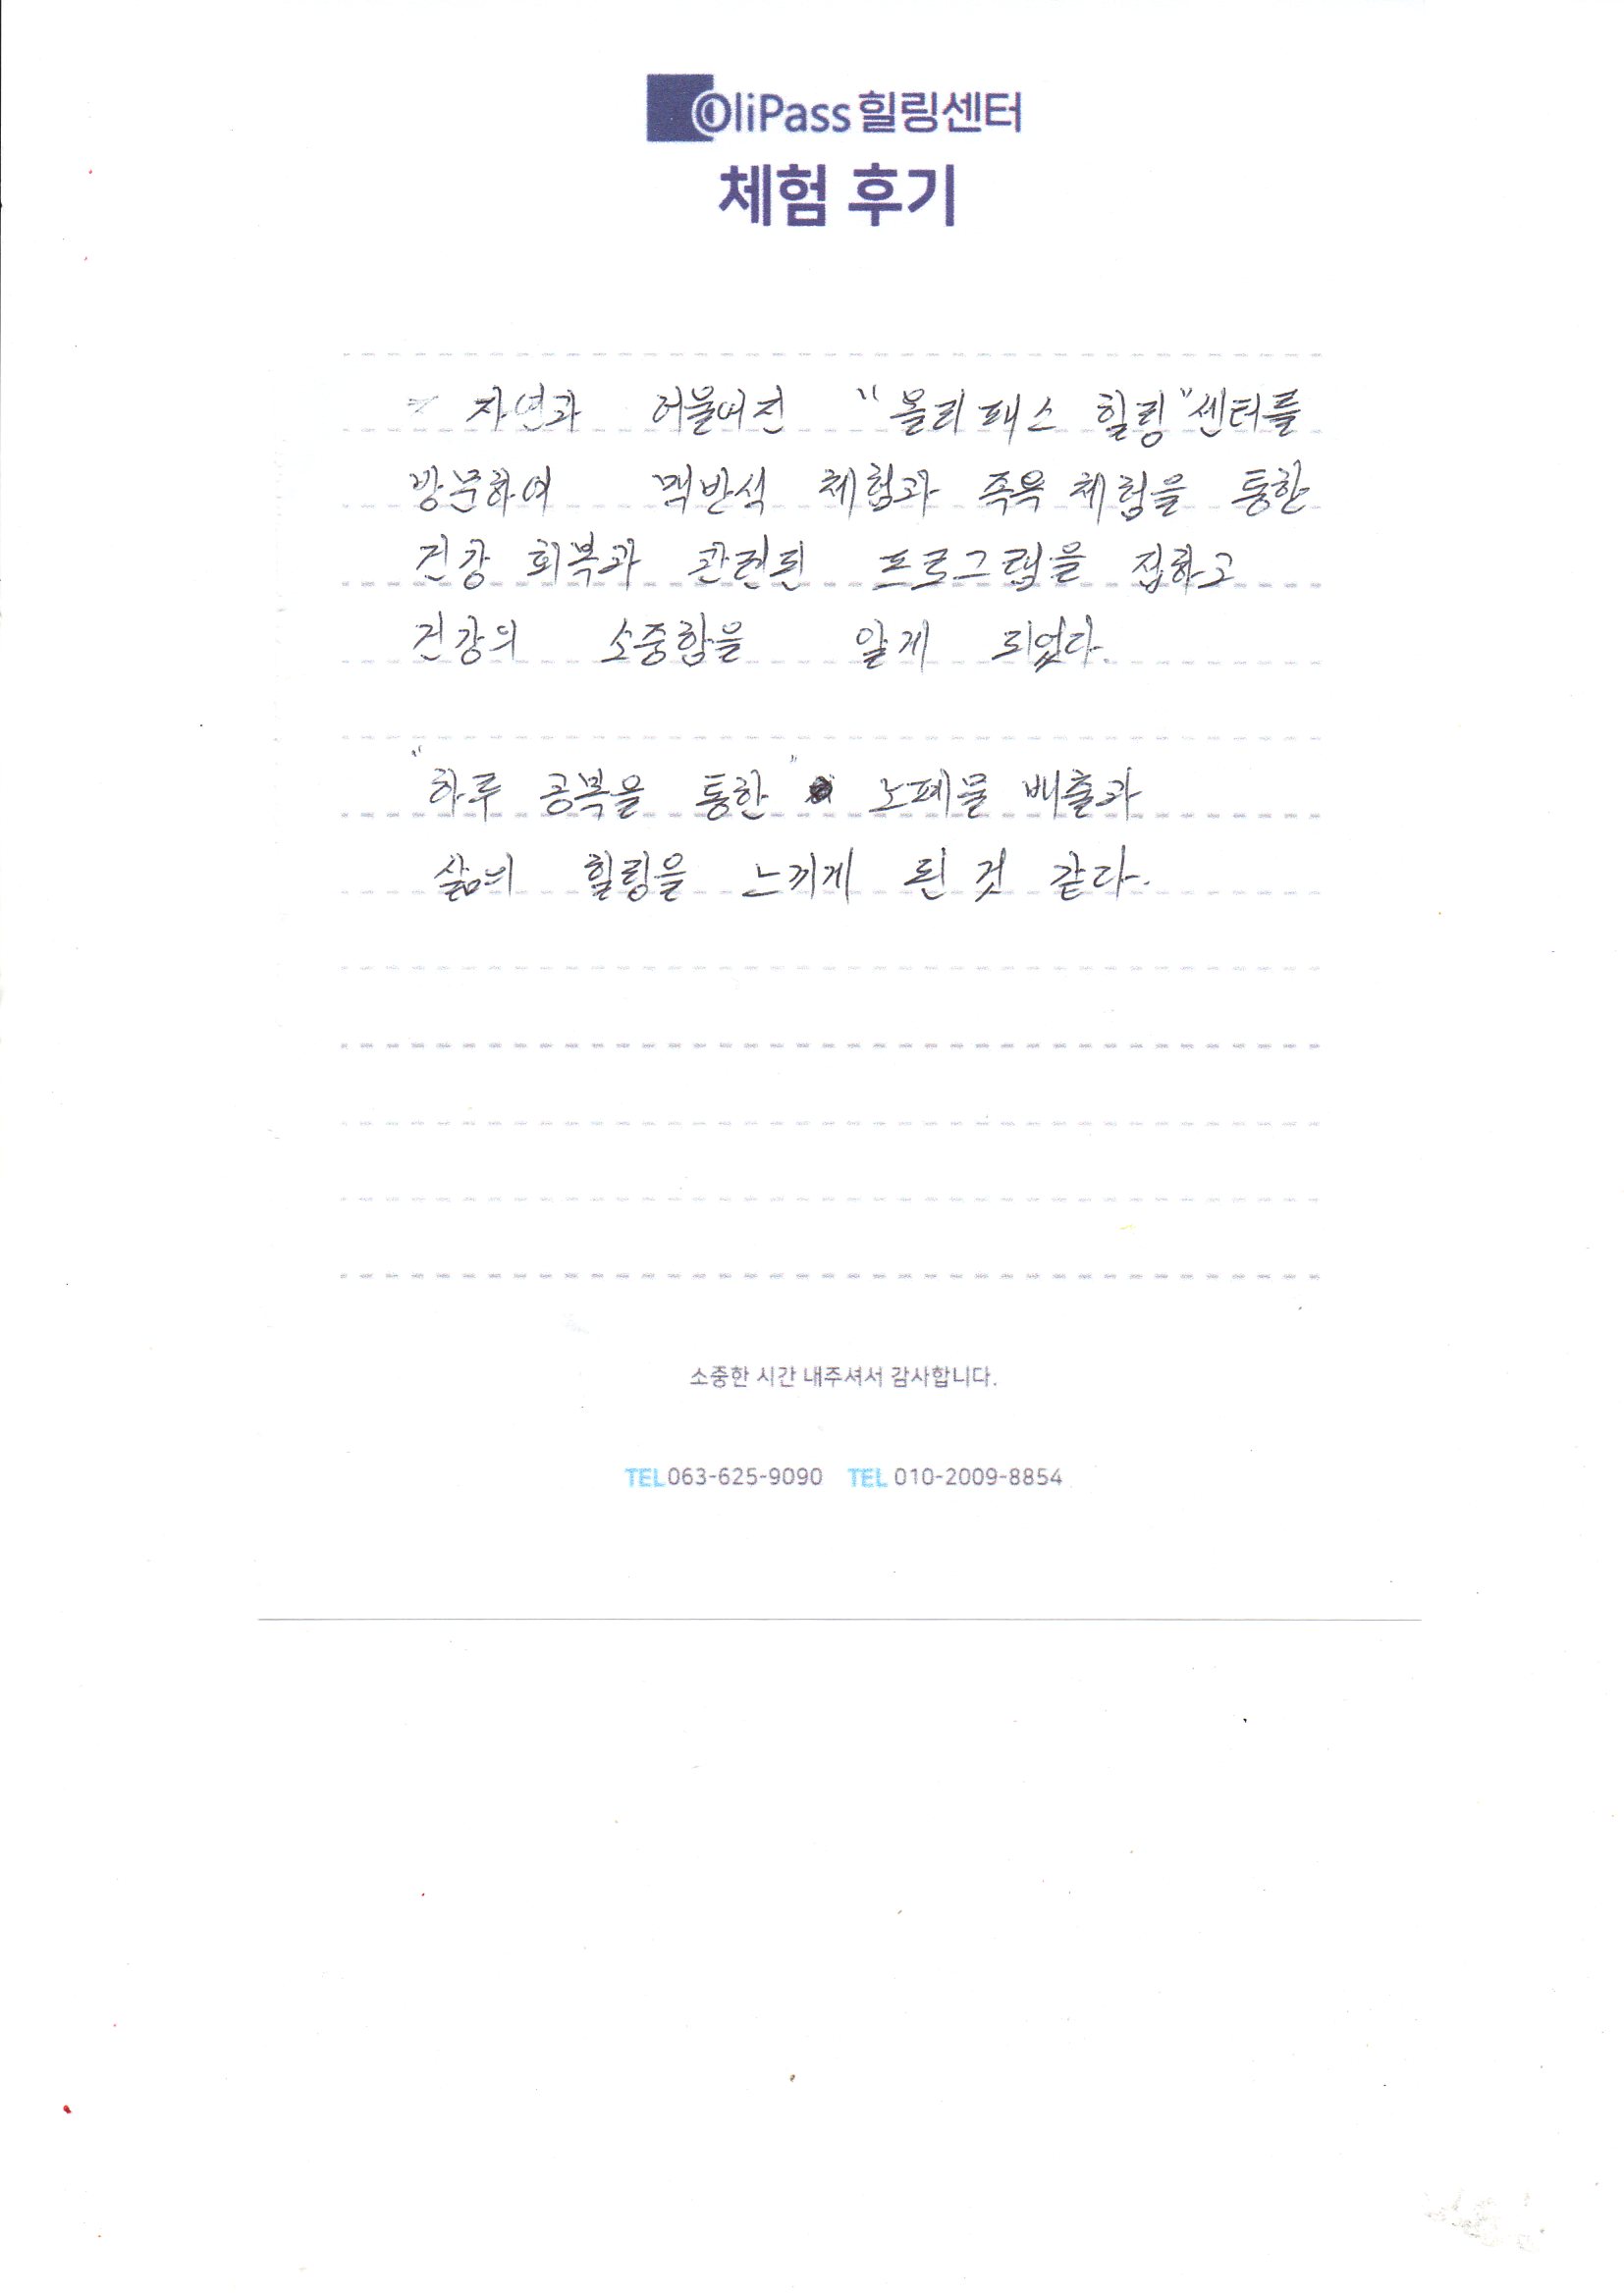 OliPass 힐링센터
체험 후기
자연과 어울어진 "올리패스 힐링"센터를
방문하여 맥반석 체험과 족욕 체험을 통한
건강 회복과 관련된 프로그램을 접하고
건강의 소중함을 알게 되었다.
"하루 공복을 통한" 노폐물 배출과
삶의 힐링을 느끼게 된 것 같다.
소중한 시간 내주셔서 감사합니다.
TEL 063-625-9090 TEL 010-2009-8854